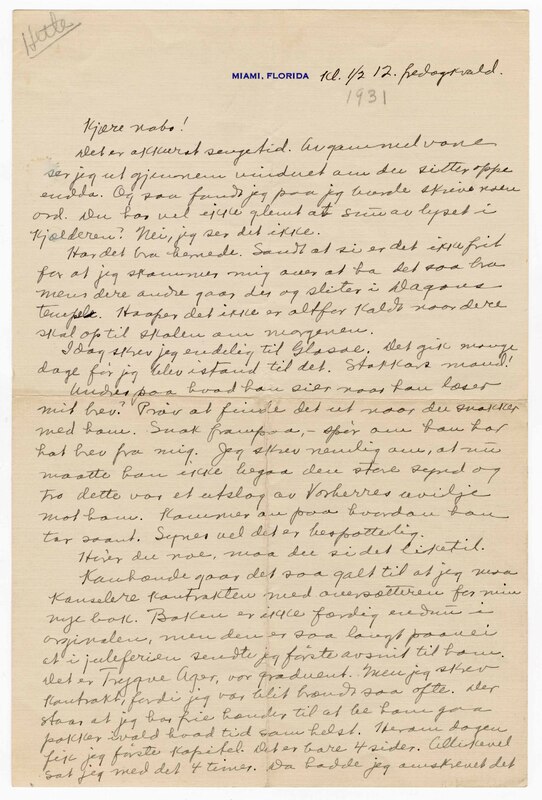 Hette
MIAMI, FLORIDA Kl. 1/2 12. fredagskvald.
1931
Kjære nabo!
Det er akkurat sengetid. Av gammel vane
ser jeg ut gjennem vinduet om du sitter oppe
endda. Og saa fandt jeg paa jeg burde skrive noen
ord. Du har vel ikke glemt at snu av lyset i
kjælderen? Nei, jeg ser det ikke.
Har det bra hernede. Sandt at si er det ikke frit
for at jeg skammer mig over at ha det saa bra
mens dere andre gaar der og sliter i Dagons
tempel. Haaper det ikke er altfor kaldt naar dere
skal op til skolen om morgenen.
Idag skrev jeg endelig til Glasoe. Det gik mange
dage før jeg blev istand til det. Stakkars mand!
Undres paa hvad han sier naar han læser
mit brev? Prøv at finde det ut naar du snakker
med ham. Snak frampaa, - spør om han har
hat brev fra mig. Jeg skrev nemlig om, at nu
maatte han ikke begaa den store synd og
tro dette var et utslag av Vorherres uvilje
mot ham. Kommer an paa hvordan han
tar saant. Synes vel det er bespottelig.
Hører du noe, maa du si det liketil.
Kanhænde gaar det saa galt til at jeg maa
kanselere kontrakten med oversætteren for min
nye bok. Boken er ikke færdig endnu i
orginalen, men den er saa langt paavei
at i juleferien sendte jeg første avsnit til ham.
Det er Trygve Ager, vor graduent. Men jeg skrev
kontrakt, fordi jeg var blit brændt saa ofte. Der
staar at jeg har frie hænder til at be ham gaa
pokker ivald hvad tid som helst. Herom dagen
fik jeg første kapitel. Det er bare 4 sider. Allikevel
sat jeg med det 4 timer. Da hadde jeg omskrevet det